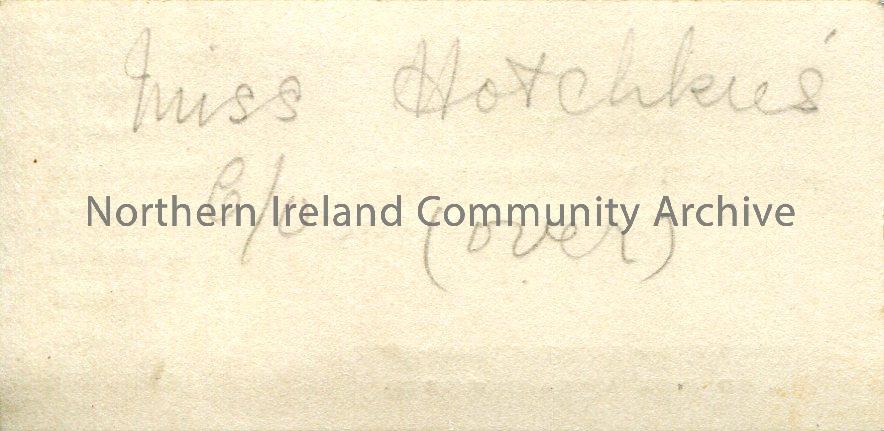 Miss Hotchkies
C/o (over)
Northern Ireland Community Archive